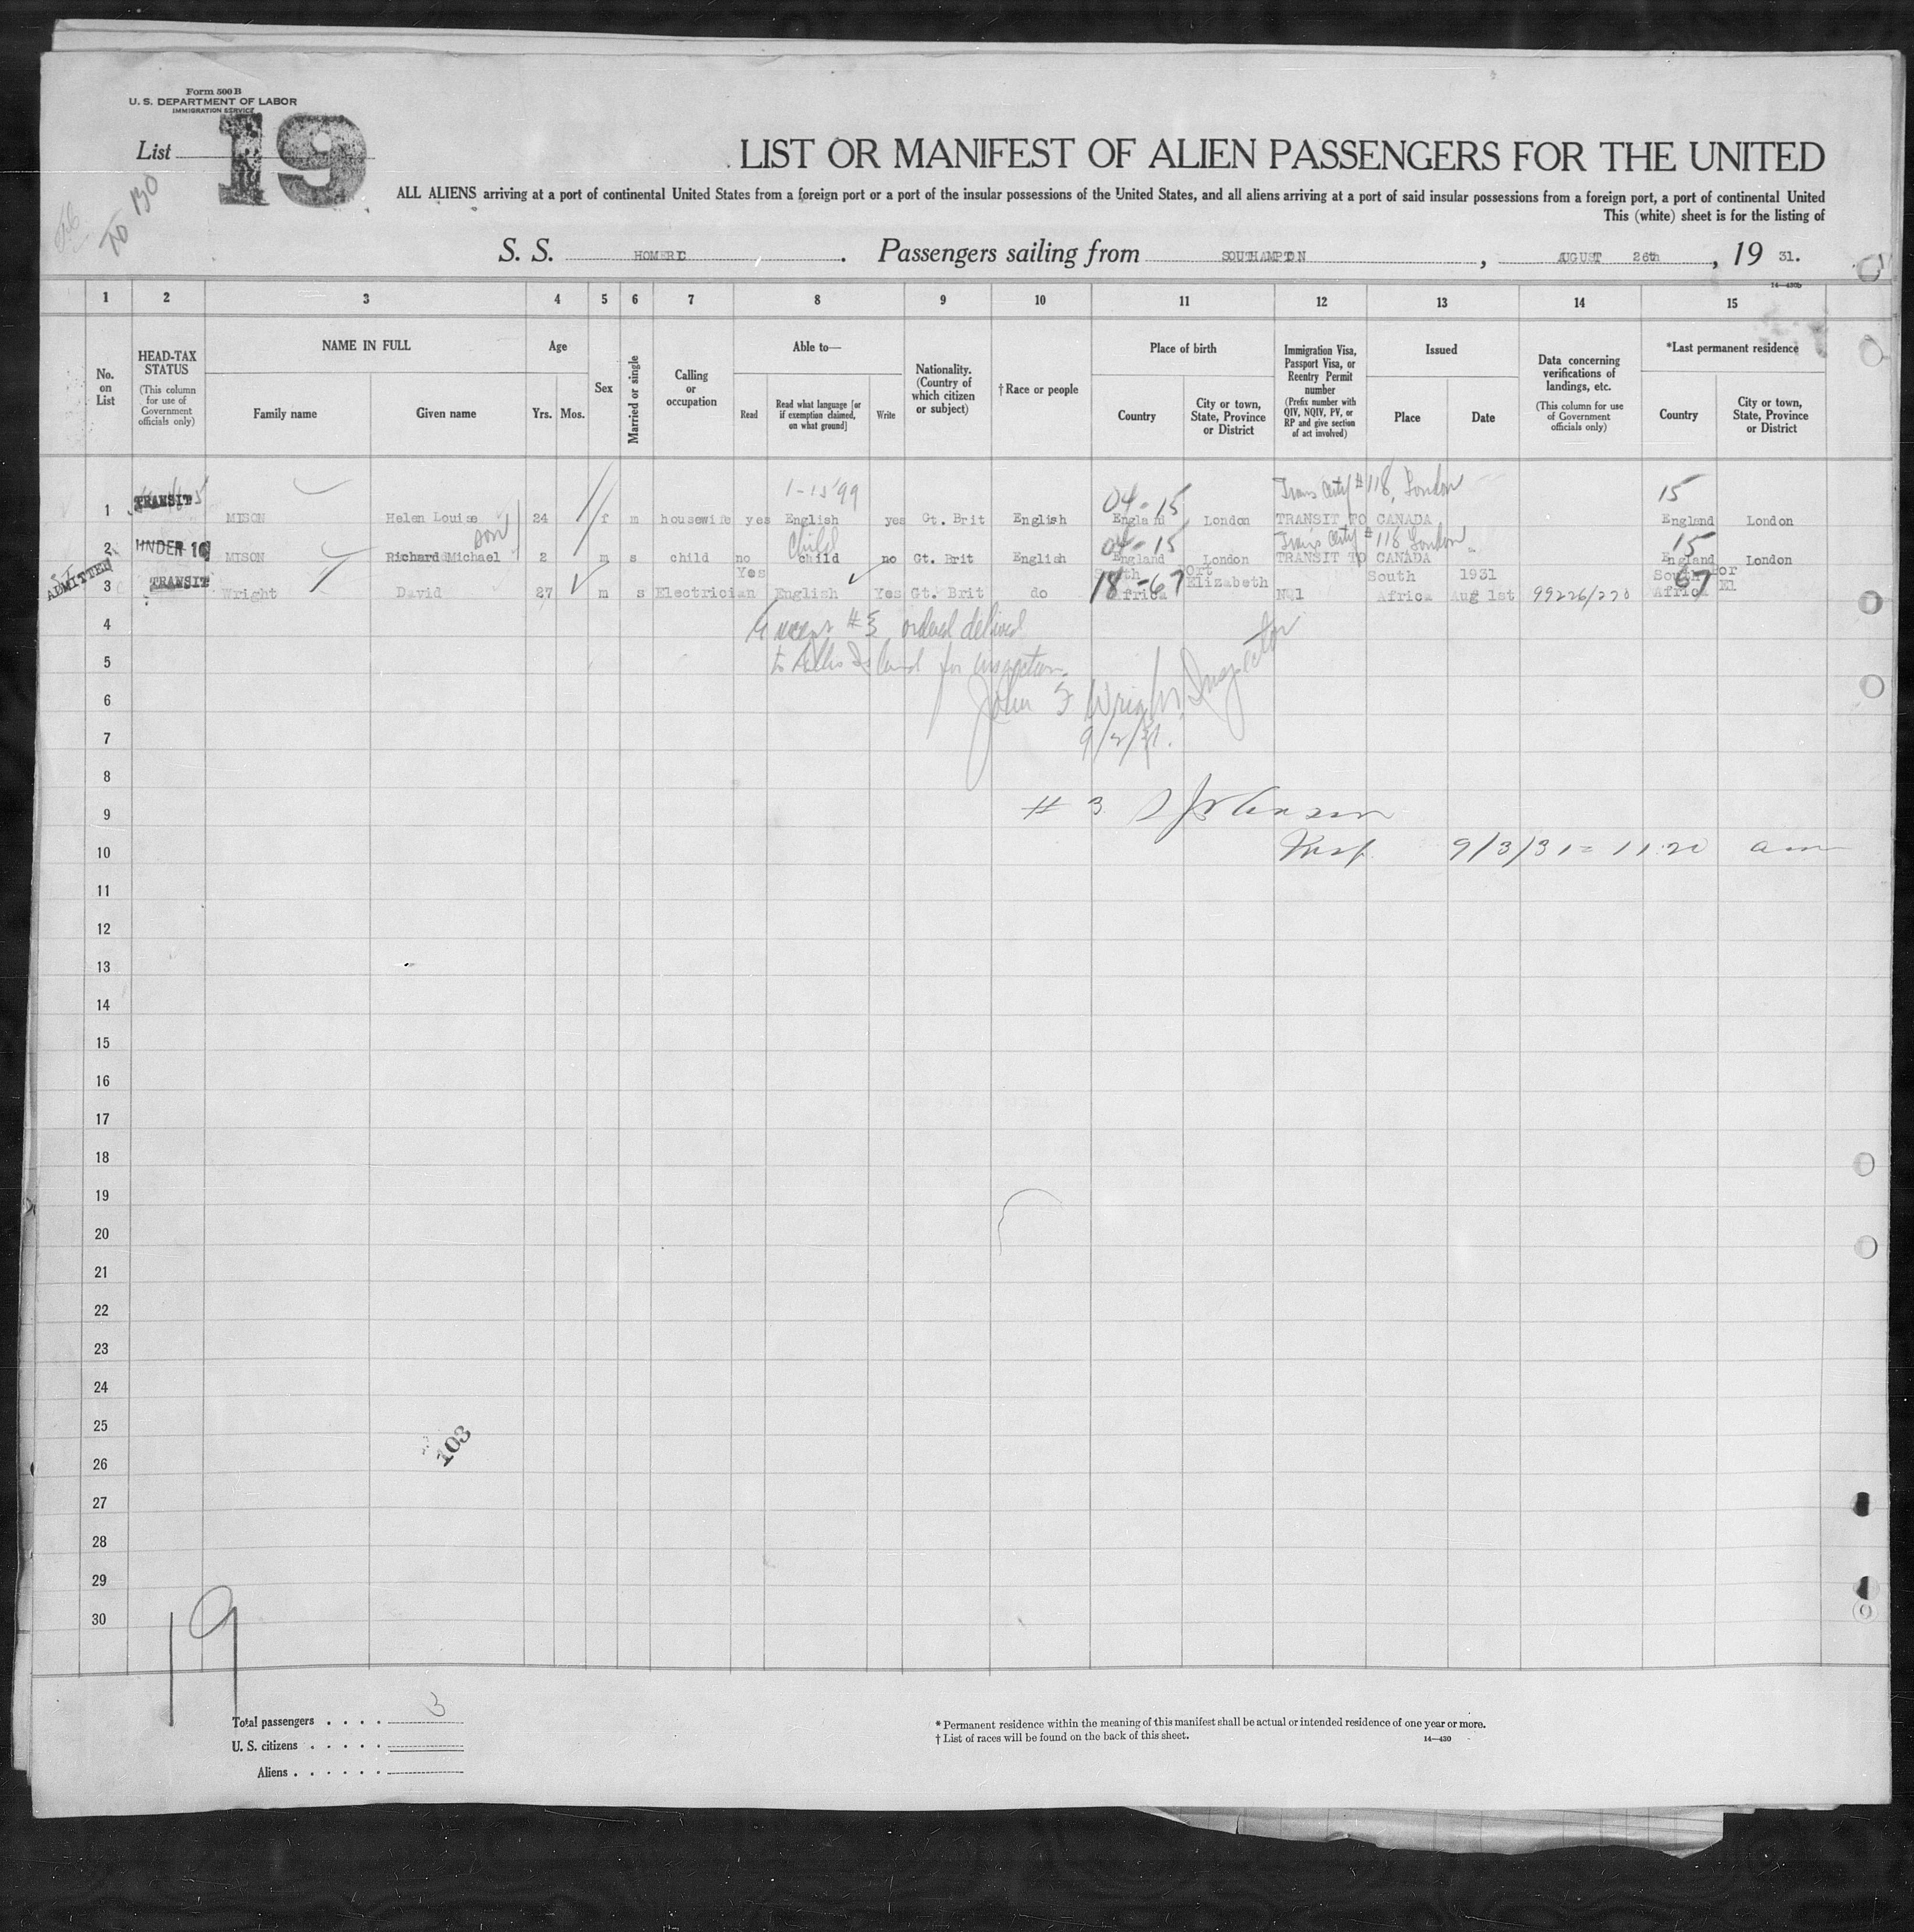 Form 500 B
U. S. DEPARTMENT OF LABOR
IMMIGRATION SERVICE
List 19
TO 130
LIST OR MANIFEST OF ALIEN PASSENGERS FOR THE UNITED
ALL ALIENS arriving at a port of continental United States from a foreign port or a port of the insular possessions of the United States, and all aliens arriving at a port of said insular possessions from a foreign port, a port of continental United
This (white) sheet is for the listing of
S. S. HOMERIC . Passengers sailing from SOUTHAMPTON , AUGUST 26th , 19 31.
14—430b
1 2 3 4 5 6 7 8 9 10 11 12 13 14 15
No. on List
HEAD-TAX STATUS (This column for use of Government officials only)
NAME IN FULL Family name Given name
Age Yrs. Mos.
Sex
Married or single
Calling or occupation
Able to— Read Read what language [or if exemption claimed, on what ground] Write
Nationality. (Country of which citizen or subject)
† Race or people
Place of birth Country City or town, State, Province or District
Immigration Visa, Passport Visa, or Reentry Permit number (Prefix number with QIV, NQIV, PV, or RP and give section of act involved)
Issued Place Date
Data concerning verifications of landings, etc. (This column for use of Government officials only)
*Last permanent residence Country City or town, State, Province or District
1-15'99 04-15 #118, London 15
1 TRANSIT MISON Helen Louise 24 f m housewife yes English yes Gt. Brit English England London TRANSIT TO CANADA England London
son Child 04-15 #118 London 15
2 UNDER 16 MISON Richard Michael 2 m s child no child no Gt. Brit English England London TRANSIT TO CANADA England London
ADMITTED
3 TRANSIT Wright David 27 m s Electrician Yes English Yes Gt. Brit do South Africa 18-67 Ort Elizabeth NQ1 South Africa 1931 Aug 1st 99226/220 South Africa 67 Por El
4 #3 ordered
5 to Ellis Island for inspection.
6 John F Wright, Inspector
7 9/2/31.
8
9 # 3
10 Insp. 9/3/31= 11:20 am
11
12
13
14
15
16
17
18
19
20
21
22
23
24
25
103
26
27
28
29
30
19
Total passengers . . . . 3
U. S. citizens . . . . .
Aliens . . . . . .
* Permanent residence within the meaning of this manifest shall be actual or intended residence of one year or more.
† List of races will be found on the back of this sheet.
14—430